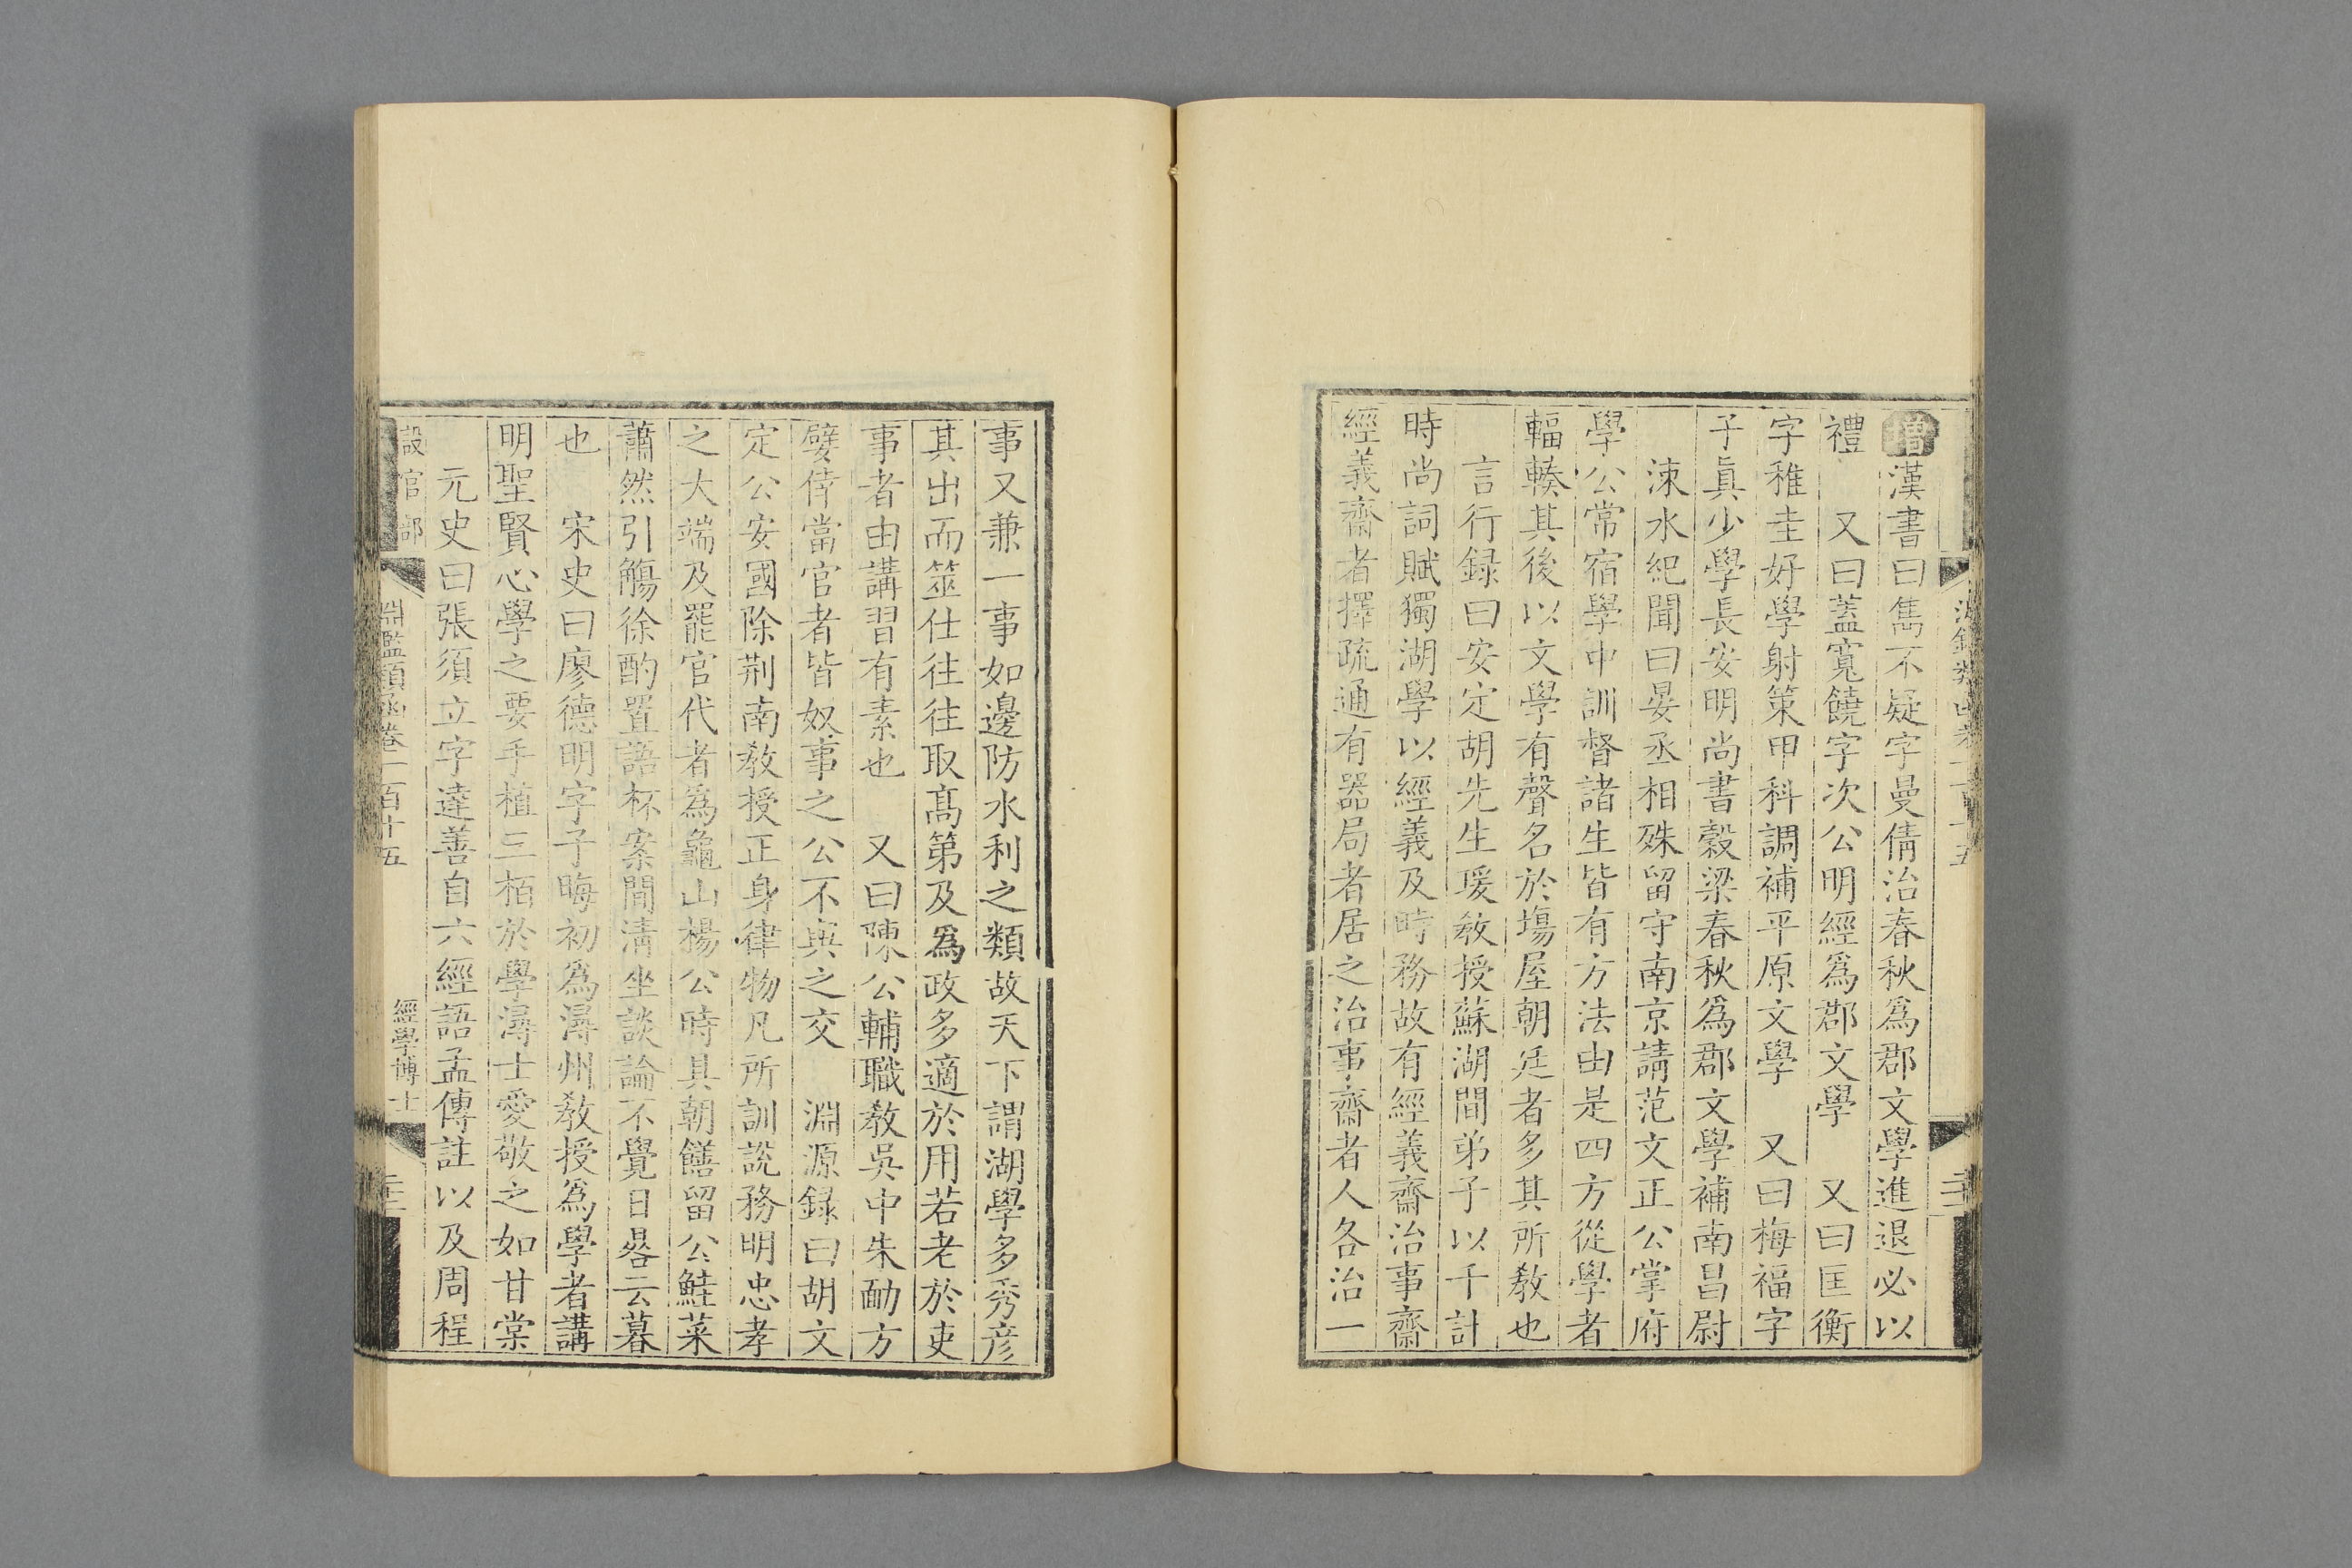 增漢書曰雋不疑字曼倩治春秋爲郡文學進退必以
禮　又曰蓋寬饒字次公明經爲郡文學　又曰匡衡
字稚圭好學射策甲科調補平原文學　又曰梅福字
子眞少學長安明尚書穀梁春秋爲郡文學補南昌尉
涑水紀聞曰晏丞相殊留守南京請范文正公掌府
學公常宿學中訓督諸生皆有方法由是四方從學者
輻輳其後以文學有聲名於塲屋朝廷者多其所敎也
言行録曰安定胡先生瑗敎授蘇湖間弟子以千計
時尚詞賦獨湖學以經義及時務故有經義齋治事齋
經義齋者擇疏通有器局者居之治事齋者人各治一
事又兼一事如邊防水利之類故天下謂湖學多秀彦
其出而筮仕往往取髙第及爲政多適於用若老於吏
事者由講習有素也　又曰陳公輔職敎吳中朱勔方
嬖倖當官者皆奴事之公不與之交　淵源録曰胡文
定公安國除荆南敎授正身律物凡所訓說務明忠孝
之大端及罷官代者爲龜山楊公時具朝饍留公鮭菜
蕭然引觴徐酌置語杯案間淸坐談論不覺日晷云暮
也　宋史曰廖德明字子晦初爲潯州敎授爲學者講
明聖賢心學之要手植三栢於學潯士愛敬之如甘棠
元史曰張須立字達善自六經語孟傳註以及周程
設官部　淵鑑類函卷一百十五　經學博士